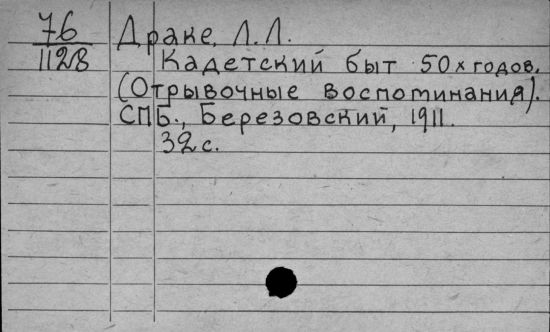 76 Драке, Л.Л.
1128 Кадетский быт 50х годов.
(Отрывочные воспоминания).
СПБ., Березовский, 1911.
32 с.